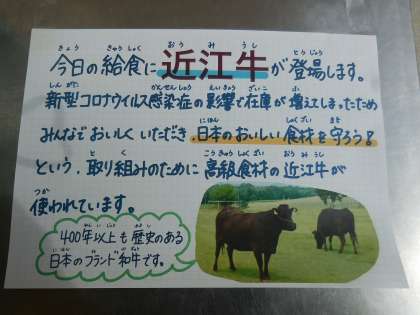 きょう きゅうしょく おうみうし とうじょう
今日の給食に近江牛が登場します。
しんがた かんせんしょう えいきょう ざいこ ふ
新型コロナウイルス感染症の影響で在庫が増えてしまったため
にほん しょくざい まも
みんなでおいしくいただき、日本のおいしい食材を守ろう!
と く こうきゅうしょくざい おうみうし
という、取り組みのために高級食材の近江牛が
つか
使われています。
ねんいじょう れきし
400年以上も歴史のある
にほん わぎゅう
日本のブランド和牛です。